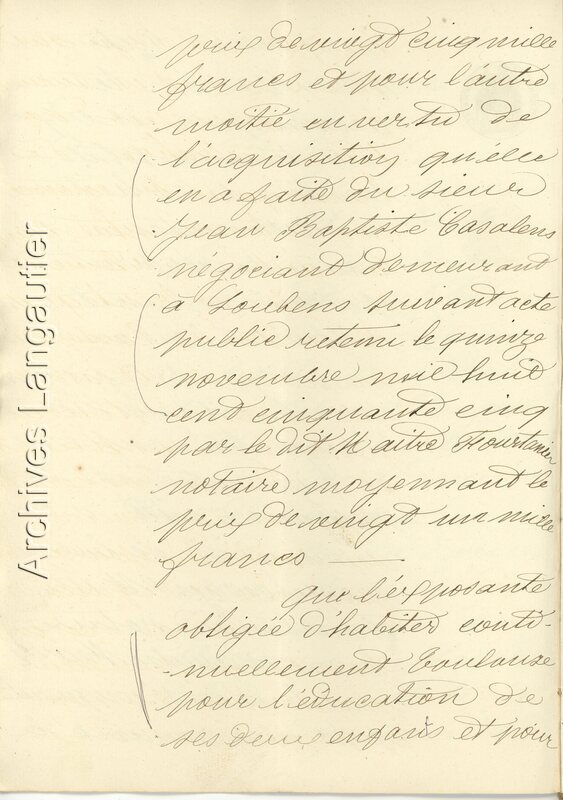 prix de vingt cinq mille
francs et pour l'autre
moitié en vertu de
l'acquisition qu'elle
en a faite du sieur
Jean Baptiste Casalens
négociant demeurant
à Loubens suivant acte
public retenu le quinze
novembre mil huit
cent cinquante cinq
par le dit Maitre Fourtanier
notaire moyennant le
prix de vingt un mille
francs —
que l'exposante
obligée d'habiter conti-
-nuellement Toulouse
pour l'éducation de
ses deux enfans et pour
Archives Langautier